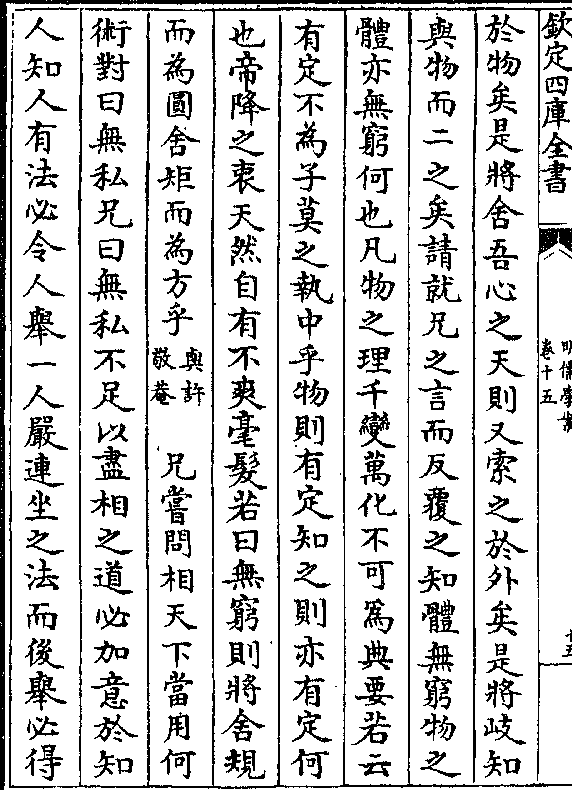 欽定四庫全書
明儒學案
卷十五
十五
於物矣是將舍吾心之天則又索之於外矣是將岐知
與物而二之矣請就兄之言而反覆之知體無窮物之
體亦無窮何也凡物之理千變萬化不可為典要若云
有定不為子莫之執中乎物則有定知之則亦有定何
也帝降之衷天然自有不爽毫髮若曰無窮則將舍規
而為圓舍矩而為方乎與許敬菴 兄嘗問相天下當用何
術對曰無私兄曰無私不足以盡相之道必加意於知
人知人有法必令人舉一人嚴連坐之法而後舉必得